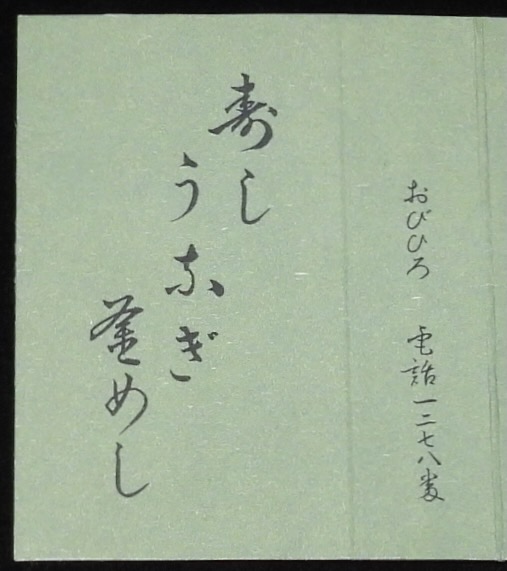 おびひろ 電話一二七八番
寿し
うなぎ
釜めし